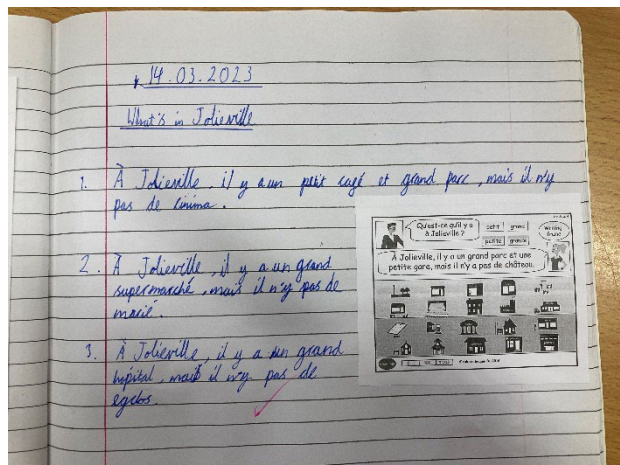 14.03.2023
What's in Jolieville
1. À Jolieville, il y a un petit cagé et grand parc, mais il n'y
pas de cinima.
2. À Jolieville, il y a un grand
supermarché, mais il n'y pas de
marié.
3. À Jolieville, il y a un grand
hôpital, mais il n'y pas de
Qu'est-ce qu'il y a
à Jolieville ?
petit grand
petite grande
À Jolieville, il y a un grand parc et une
petite gare, mais il n'y a pas de château.